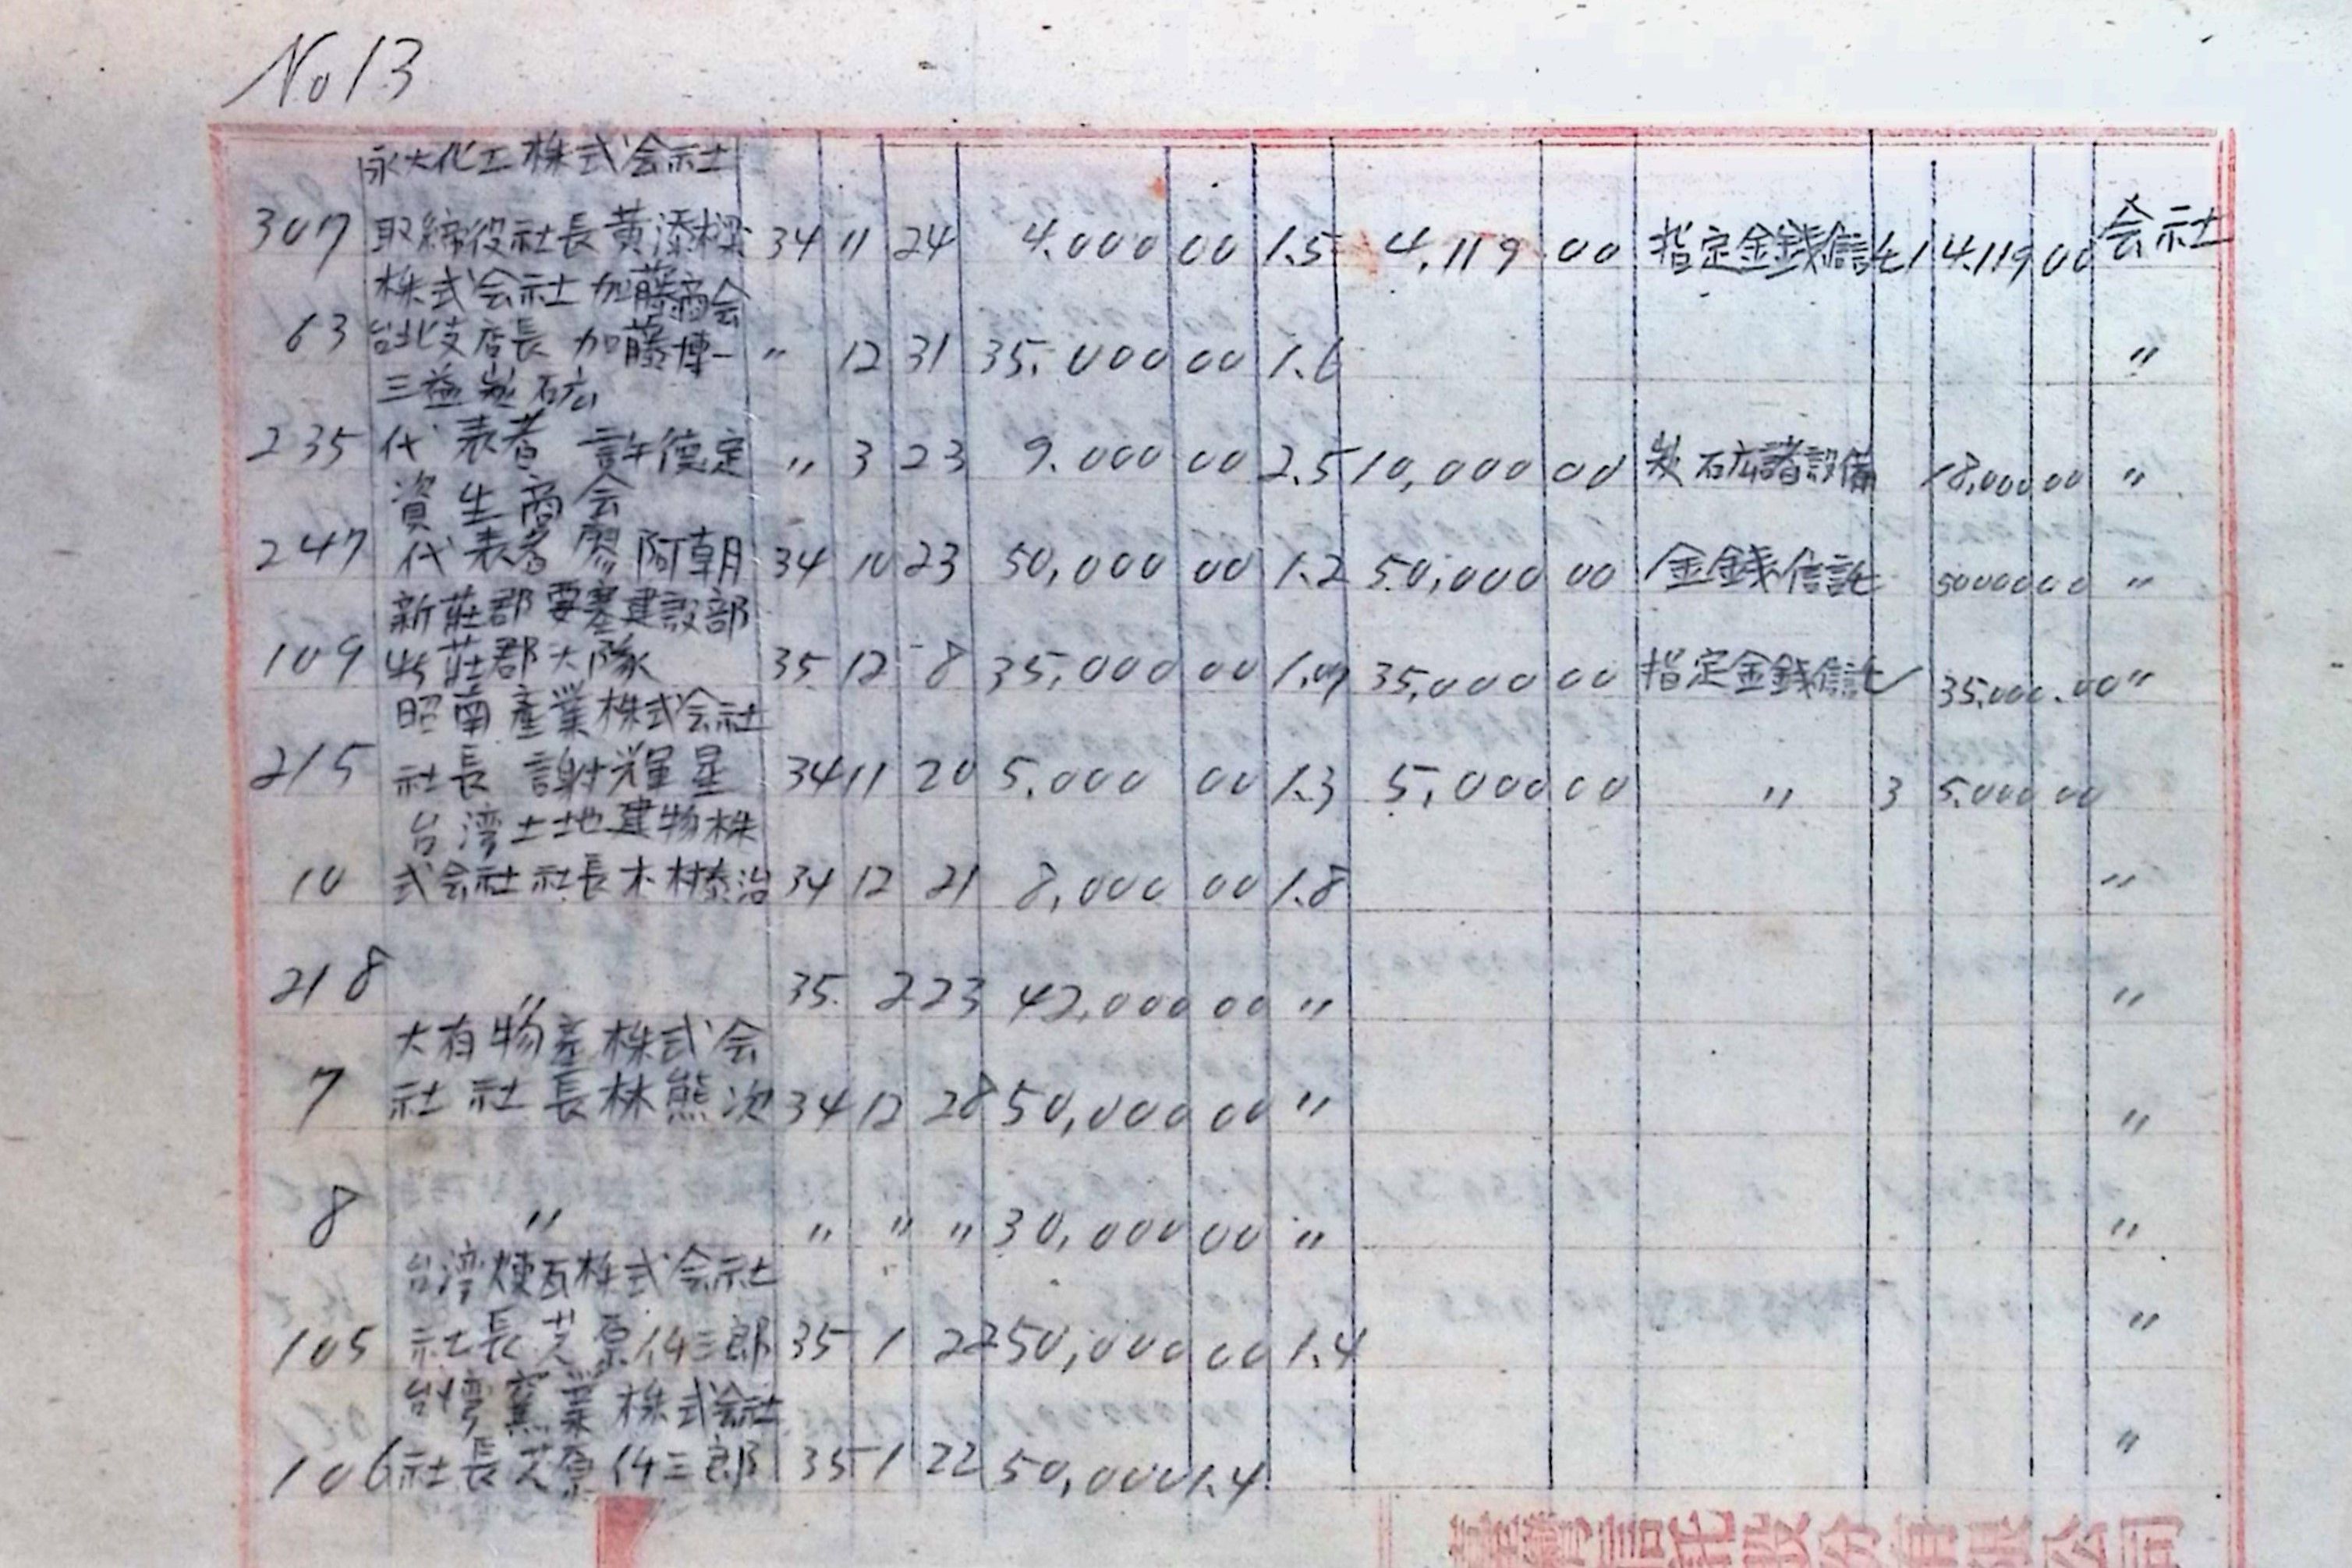 No 13
永大化工株式会社
307 取締役社長黄添樑 34 11 24 4.000 00 1.5 4,119 00 指定金銭信託 1 4.119 00 会社
株式会社加藤商会
63 台北支店長 加藤博一 〃 12 31 35,000 00 1.6 〃
三益製石広
235 代表者 許德定 〃 3 23 9.000 00 2.5 10,000 00 製石広諸設備 18,000 00 〃
資生商会
247 代表者 廖阿朝 34 10 23 50,000 00 1.2 50,000 00 金銭信託 50000 00 〃
新莊郡要塞建設部
109 新莊郡大隊 35 12 8 35,000 00 35,000 00 指定金銭信託 35,000.00 〃
昭南產業株式会社
215 社長 謝耀星 34 11 20 5,000 00 1.3 5,000 00 〃 3 5,000 00
台湾土地建物株
10 式会社社長木村泰治 34 12 21 8,000 00 1.8 〃
218 〃 35. 2 23 42,000 00 〃 〃
大有物産株式会
7 社社長林熊次 34 12 28 50,000 00 〃 〃
8 〃 〃 〃 〃 30,000 00 〃 〃
台湾煉瓦株式会社
105 社長芝原仔三郎 35 1 22 50,000 00 1.4 〃
台湾窯業株式会社
106 社長芝原仔三郎 35 1 22 50,000 1.4 〃
臺灣信託股份有限公司